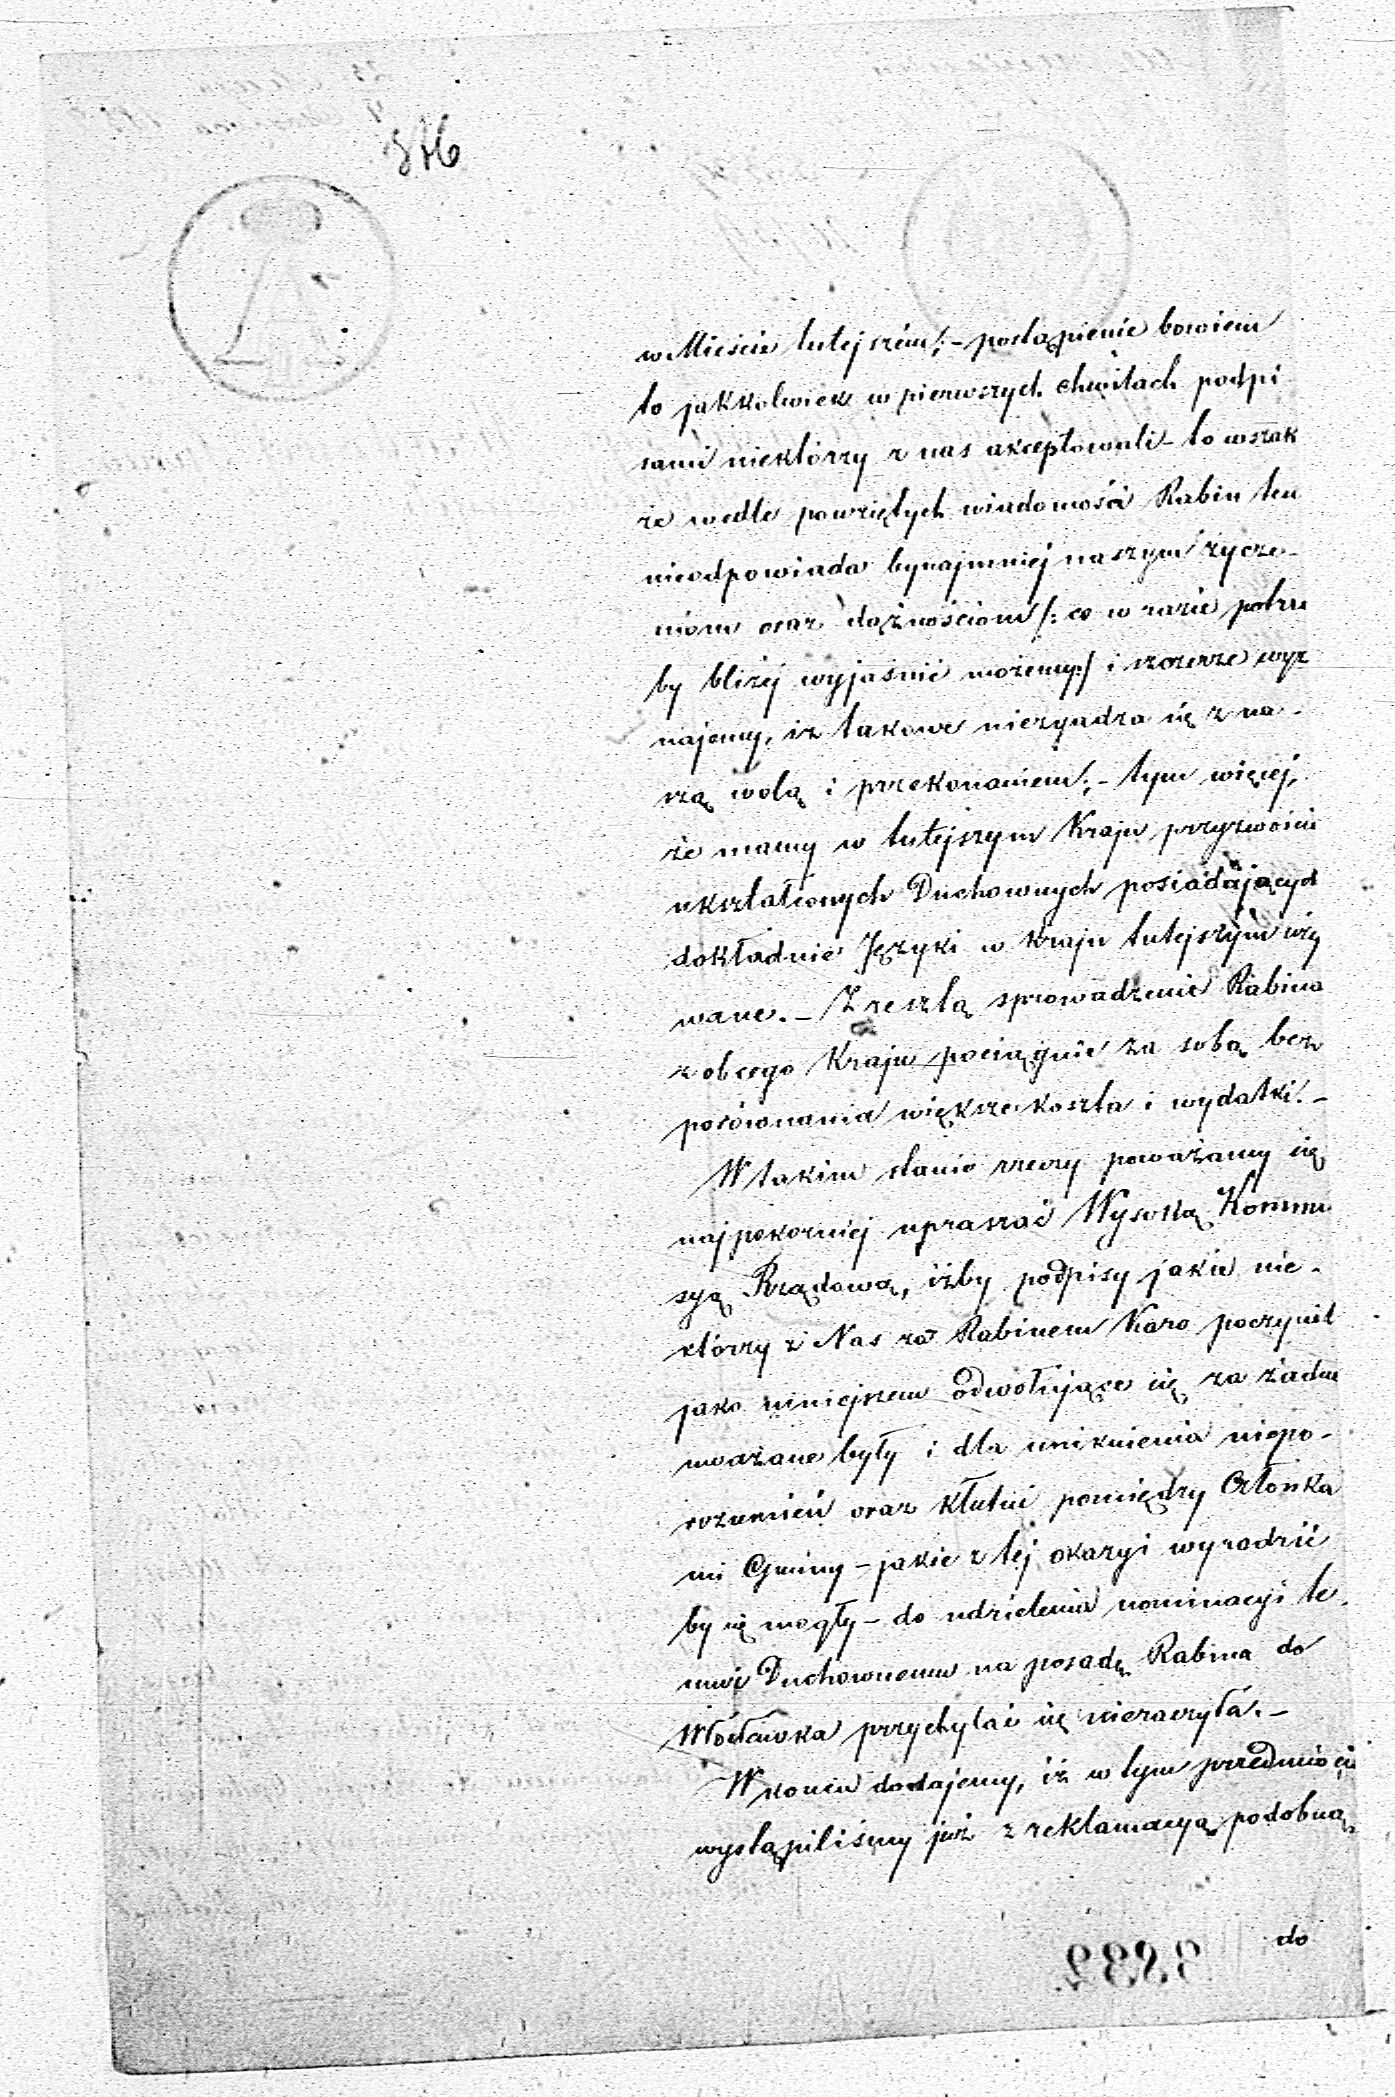 w Mieście tutejszém; – postąpienie bowiem
to jakkolwiek w pierwszych chwilach podpi
sani niektórzy z nas akceptowali – to wszak
że wedle powziętych wiadomości Rabin ten
nieodpowiada bynajmniej naszym życze-
niom oraz dążnościom /: co w razie potrze
by bliżej wyjaśnić możemy :/ i szczerze wyz
najemy, iż takowe niezgadza się z na-
szą wolą i przekonaniem; – tym więcej,
że mamy w tutejszym Kraju przyzwoicie
ukształconych Duchownych posiadających
dokładnie Języki w kraju tutejszym uży
wane. – Zresztą sprowadzenie Rabina
z obcego Kraju pociągnie za sobą bez
porównania większe koszta i wydatki. –
W takim stanie rzeczy poważamy się
najpokorniej upraszać Wysoką Kommi
syą Rządową, iżby podpisy jakie nie-
którzy z Nas za Rabinem Karo poczynił
jako niniejszem odwołujące się za żadne
uważane były i dla uniknienia niepo-
rozumień oraz kłutni pomiędzy Członka
mi Gminy – jakie z tej okazyi wyrodzić
by się mogły – do udzielenia nominacyi te-
muż Duchownemu na posadę Rabina do
Włocławka przychylać się nieraczyła. –
W końcu dodajemy, iż w tym przedmiocie
wystąpiliśmy już z reklamacyą podobną
do